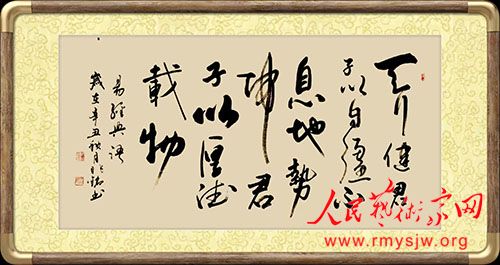 天行健君
子以自强不
息地势
坤君
子以厚德
载物
易经典语
岁在辛丑秋月
书
人民艺术家网
www.rmysjw.org